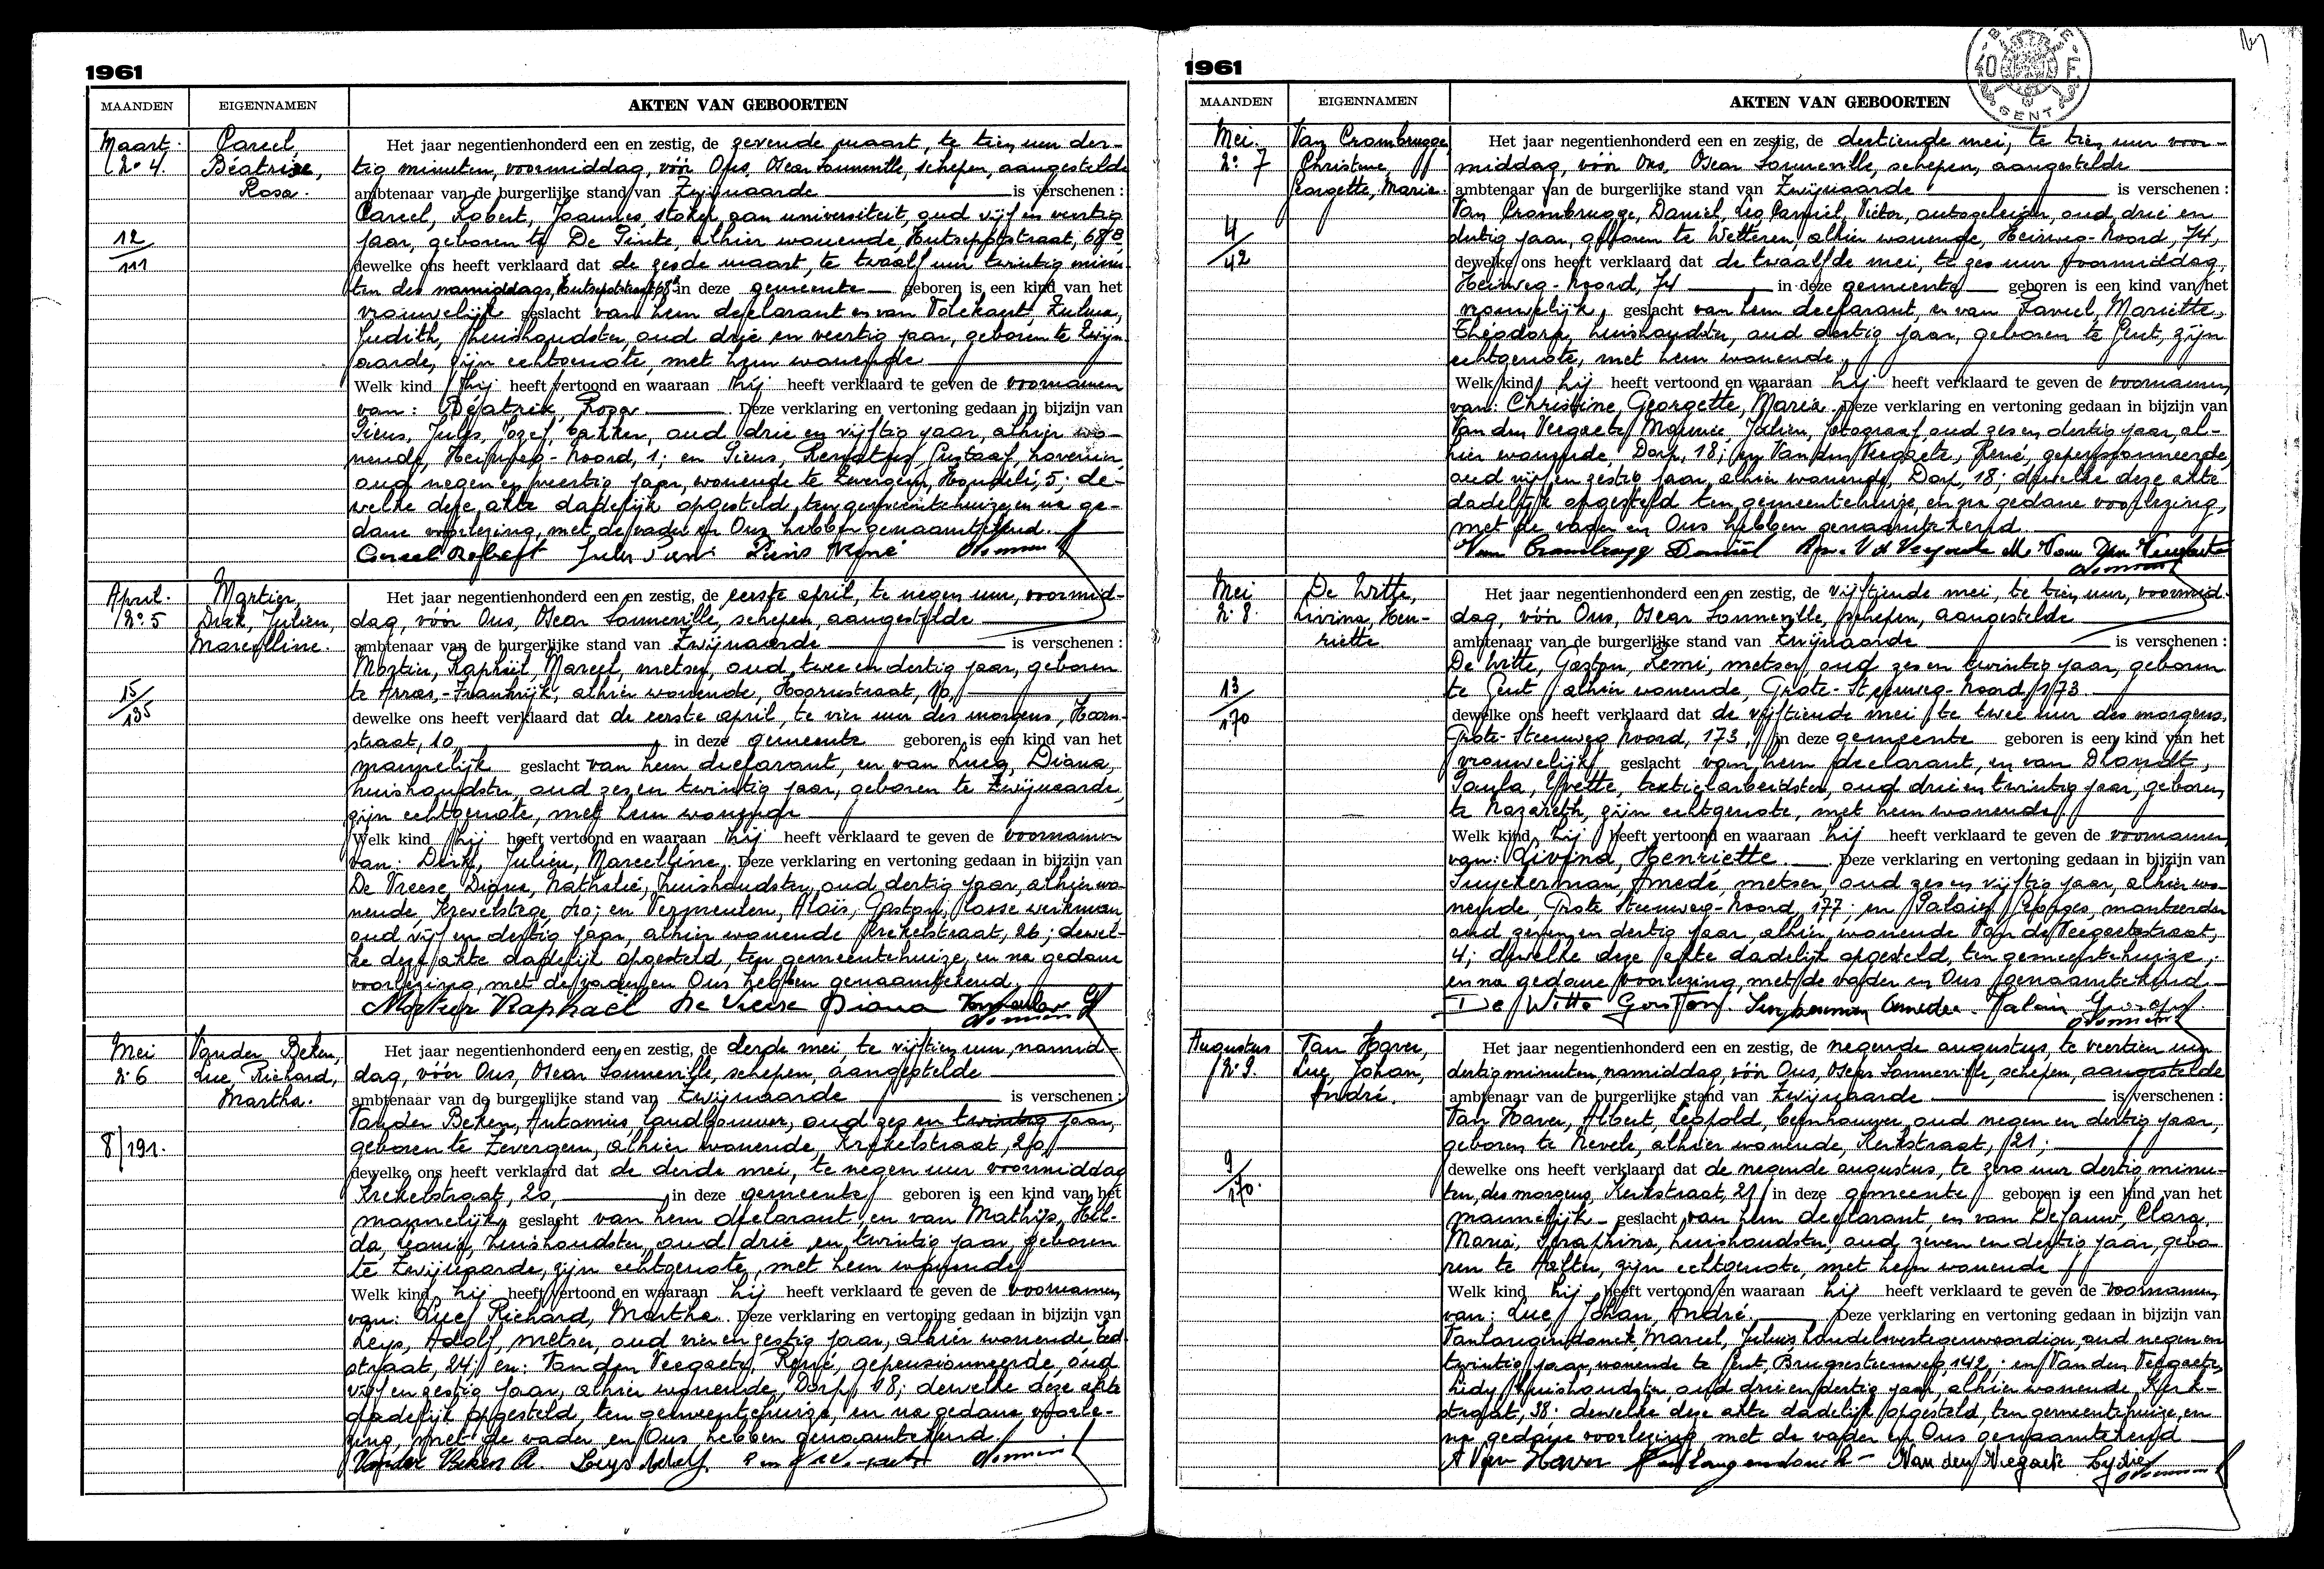 1961
MAANDEN EIGENNAMEN AKTEN VAN GEBOORTEN
Maart.
N° 4.
12/111
Careel,
Béatrixe,
Rosa.
Het jaar negentienhonderd een en zestig, de zevende maart, te tien uur der-
tig minuten, voormiddag, vóór Ons, Oscar Sonneville, schepen, aangestelde
ambtenaar van de burgerlijke stand van Zwijnaarde is verschenen :
Careel, Robert, Joannes, stoker aan universiteit, oud vijf en veertig
jaar, geboren te De Pinte, alhier wonende, Hutsepotstraat, 68B
dewelke ons heeft verklaard dat de zesde maart, te twaalf uur twintig minu-
ten des namiddags, Hutsepotstraat 68B in deze gemeente geboren is een kind van het
vrouwelijk geslacht van hem declarant en van Volckaert, Zulma,
Judith, huishoudster, oud drie en veertig jaar, geboren te Zwijn-
aarde, zijn echtgenote, met hem wonende
Welk kind hij heeft vertoond en waaraan hij heeft verklaard te geven de voornamen
van : Béatrix, Rosa. Deze verklaring en vertoning gedaan in bijzijn van
Piens, Jules, Jozef, bakker, oud drie en vijftig jaar, alhier wo-
nende, Heirweg-Noord, 1; en Piens, Renatus, Gustaaf, hovenier,
oud negen en veertig jaar, wonende te Zevergem, Hondelé, 5; de-
welke deze akte dadelijk opgesteld, ten gemeentehuize, en na ge-
dane voorlezing, met de vader en Ons hebben genaamtekend.
Careel Robert Jules Piens Piens René
April.
N° 5
15/135
Mortier,
Dirk, Julien,
Marcelline.
Het jaar negentienhonderd een en zestig, de eerste april, te negen uur, voormid-
dag, vóór Ons, Oscar Sonneville, schepen, aangestelde
ambtenaar van de burgerlijke stand van Zwijnaarde is verschenen :
Mortier, Raphaël, Marcel, metser, oud twee en dertig jaar, geboren
te Arras,-Frankrijk, alhier wonende, Hoornstraat, 10,
dewelke ons heeft verklaard dat de eerste april, te vier uur des morgens, Hoorn-
straat, 10, in deze gemeente geboren is een kind van het
mannelijk geslacht van hem declarant, en van Lucq, Diana,
huishoudster, oud zes en twintig jaar, geboren te Zwijnaarde,
zijn echtgenote, met hem wonende
Welk kind hij heeft vertoond en waaraan hij heeft verklaard te geven de voornamen
van : Dirk, Julien, Marcelline. Deze verklaring en vertoning gedaan in bijzijn van
De Vreese, Diana, Nathalie, huishoudster, oud dertig jaar, alhier wo-
nende, en Vermeulen, Aloïs, Gaston, losse werkman,
oud vijf en dertig jaar, alhier wonende Krekelstraat, 26; dewel-
ke deze akte dadelijk opgesteld, ten gemeentehuize, en na gedane
voorlezing, met de vader en Ons hebben genaamtekend.
Mortier Raphaël De Vreese Diana Vermeulen
Mei
N° 6
8/191.
Vander Beken,
Luc, Richard,
Martha.
Het jaar negentienhonderd een en zestig, de derde mei, te vijftien uur, namid-
dag, vóór Ons, Oscar Sonneville, schepen, aangestelde
ambtenaar van de burgerlijke stand van Zwijnaarde is verschenen :
Vander Beken, Antonius, landbouwer, oud zes en twintig jaar,
geboren te Zevergem, alhier wonende, Krekelstraat, 20,
dewelke ons heeft verklaard dat de derde mei, te negen uur voormiddag
Krekelstraat, 20, in deze gemeente geboren is een kind van het
mannelijk geslacht van hem declarant, en van Mathijs, Hil-
da, huishoudster, oud drie en twintig jaar, geboren
te Zwijnaarde, zijn echtgenote, met hem wonende
Welk kind hij heeft vertoond en waaraan hij heeft verklaard te geven de voornamen
van : Luc, Richard, Martha. Deze verklaring en vertoning gedaan in bijzijn van
Leys, Adolf, metser, oud vier en zestig jaar, alhier wonende
straat, 24; en : Van den Veegaete, René, gepensionneerde, oud
vijf en zestig jaar, alhier wonende, Dorp, 18; dewelke deze akte
dadelijk opgesteld, ten gemeentehuize, en na gedane voorle-
zing, met de vader en Ons hebben genaamtekend.
Vander Beken A. Leys Adolf
1961
40 F. GENT
MAANDEN EIGENNAMEN AKTEN VAN GEBOORTEN
Mei.
N° 7
4/42
Van Crombrugge,
Christine,
Georgette, Marie.
Het jaar negentienhonderd een en zestig, de dertiende mei, te tien uur voor-
middag, vóór Ons, Oscar Sonneville, schepen, aangestelde
ambtenaar van de burgerlijke stand van Zwijnaarde is verschenen :
Van Crombrugge, Daniël, Leo, Camiel, Victor, autogeleider, oud drie en
dertig jaar, geboren te Wetteren, alhier wonende, Heirweg-Noord, 74,
dewelke ons heeft verklaard dat de twaalfde mei, te zes uur voormiddag,
Heirweg-Noord, 74 in deze gemeente geboren is een kind van het
vrouwelijk geslacht van hem declarant, en van Mariette,
huishoudster, oud dertig jaar, geboren te Gent, zijn
echtgenote, met hem wonende,
Welk kind hij heeft vertoond en waaraan hij heeft verklaard te geven de voornamen
van : Christine, Georgette, Maria. Deze verklaring en vertoning gedaan in bijzijn van
Van den Veegaete, Maurice, Julien, fotograaf, oud zes en dertig jaar, al-
hier wonende, Dorp, 18; en Van den Veegaete, René, gepensionneerde,
oud vijf en zestig jaar, alhier wonende, Dorp, 18; dewelke deze akte
dadelijk opgesteld ten gemeentehuize, en na gedane voorlezing,
met de vader en Ons hebben genaamtekend.
Van Crombrugge Daniël M. Van den Veegaete
Mei
N° 8.
13/170
De Witte,
Livina, Hen-
riette.
Het jaar negentienhonderd een en zestig, de vijftiende mei, te tien uur, voormid-
dag, vóór Ons, Oscar Sonneville, schepen, aangestelde
ambtenaar van de burgerlijke stand van Zwijnaarde is verschenen :
De Witte, Gaston, Remi, metser, oud zes en twintig jaar, geboren
te Gent, alhier wonende, Grote-Steenweg-Noord, 173.
dewelke ons heeft verklaard dat de vijftiende mei, te twee uur des morgens,
Grote-Steenweg Noord, 173, in deze gemeente geboren is een kind van het
vrouwelijk geslacht van hem declarant, en van Dhondt,
Paula, Yvette, textielarbeidster, oud drie en twintig jaar, geboren
te Nazareth, zijn echtgenote, met hem wonende
Welk kind hij heeft vertoond en waaraan hij heeft verklaard te geven de voornamen
van : Livina, Henriette. Deze verklaring en vertoning gedaan in bijzijn van
Suyckerman, Amedé, metser, oud zes en vijftig jaar, alhier wo-
nende, Grote Steenweg-Noord, 177; en Palain, Georges, monteerder
oud zeven en dertig jaar, alhier wonende Van de Veegaetestraat,
4; dewelke deze akte dadelijk opgesteld, ten gemeentehuize,
en na gedane voorlezing, met de vader en Ons genaamtekend.
De Witte Gaston. Suyckerman Amedee. Palain
Augustus
N° 9.
9/170.
Van Haver,
Luc, Johan,
André.
Het jaar negentienhonderd een en zestig, de negende augustus, te veertien uur
dertig minuten, namiddag, vóór Ons, Oscar Sonneville, schepen, aangestelde
ambtenaar van de burgerlijke stand van Zwijnaarde is verschenen :
Van Haver, Albert, Leopold, beenhouwer, oud negen en dertig jaar,
geboren te Nevele, alhier wonende, Kerkstraat, 21;
dewelke ons heeft verklaard dat de negende augustus, te zero uur dertig minu-
ten, des morgens, Kerkstraat, 21, in deze gemeente geboren is een kind van het
mannelijk geslacht van hem declarant, en van Dejauw, Clara,
Maria, Seraphina, huishoudster, oud zeven en dertig jaar, gebo-
ren te Aalter, zijn echtgenote, met hem wonende
Welk kind hij heeft vertoond en waaraan hij heeft verklaard te geven de voornamen
van : Luc, Johan, André. Deze verklaring en vertoning gedaan in bijzijn van
Vanlangendonck, Marcel, Julius, handelsvertegenwoordiger, oud negen en
twintig jaar, wonende te Gent, Brugsesteenweg, 142; en Van den Veegaete,
Lidy, huishoudster, oud drie en dertig jaar, alhier wonende, Kerk-
straat, 38; dewelke deze akte dadelijk opgesteld, ten gemeentehuize, en
na gedane voorlezing met de vader en Ons genaamtekend
A Van Haver Vanlangendonck Van den Veegaete Lydie